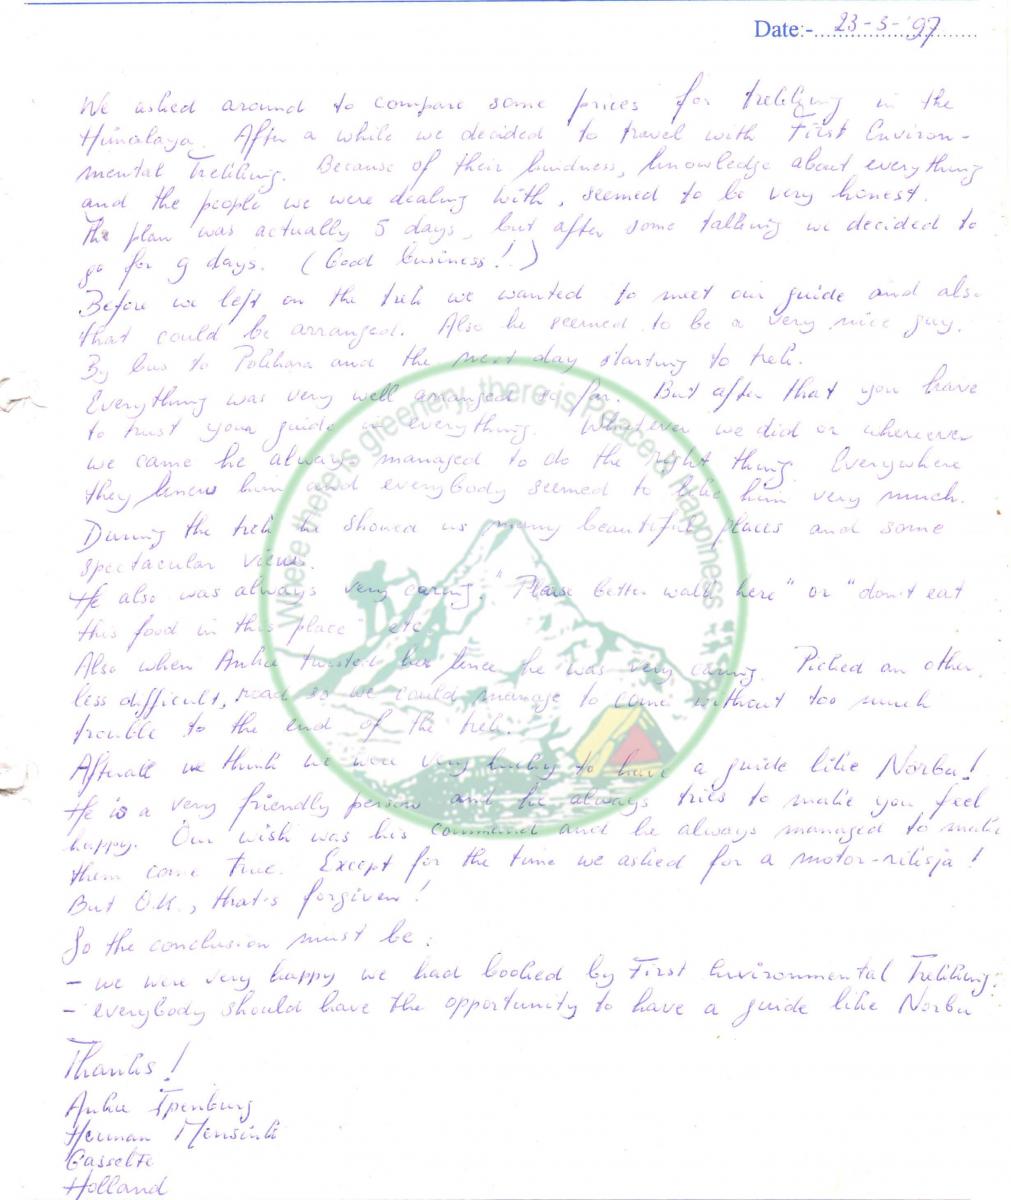 Date:- 23-3-'97
We asked around to compare some prices for trekking in the
Himalaya. After a while we decided to travel with First Environ-
mental Trekking. Because of their kindness, knowledge about everything
and the people we were dealing with, seemed to be very honest.
The plan was actually 5 days, but after some talking we decided to
go for 9 days. (Good business!)
Before we left on the trek we wanted to meet our guide and also
that could be arranged. Also he seemed to be a very nice guy.
By bus to Pokhara and the next day starting to trek.
Everything was very well arranged so far. But after that you have
to trust your guide in everything. Whatever we did or wherever
we came he always managed to do the right thing. Everywhere
they knew him and everybody seemed to like him very much.
During the trek he showed us many beautiful places and some
spectacular views.
He also was always very caring. "Please better walk here" or "don't eat
this food in this place" etc.
Also when Anke twisted her knee he was very caring. Picked an other
less difficult, road so we could manage to come without too much
trouble to the end of the trek.
Afterall we think we were very lucky to have a guide like Norbu!
He is a very friendly person and he always tries to make you feel
happy. Our wish was his command and he always managed to make
them come true. Except for the time we asked for a motor-riksja!
But O.K., that's forgiven!
So the conclusion must be:
- we were very happy we had booked by First Environmental Trekking!
- everybody should have the opportunity to have a guide like Norbu
Thanks!
Anke Ipenburg
Herman Mensink
Gasselte
Holland
Where there is greenery, there is Peace & Happiness